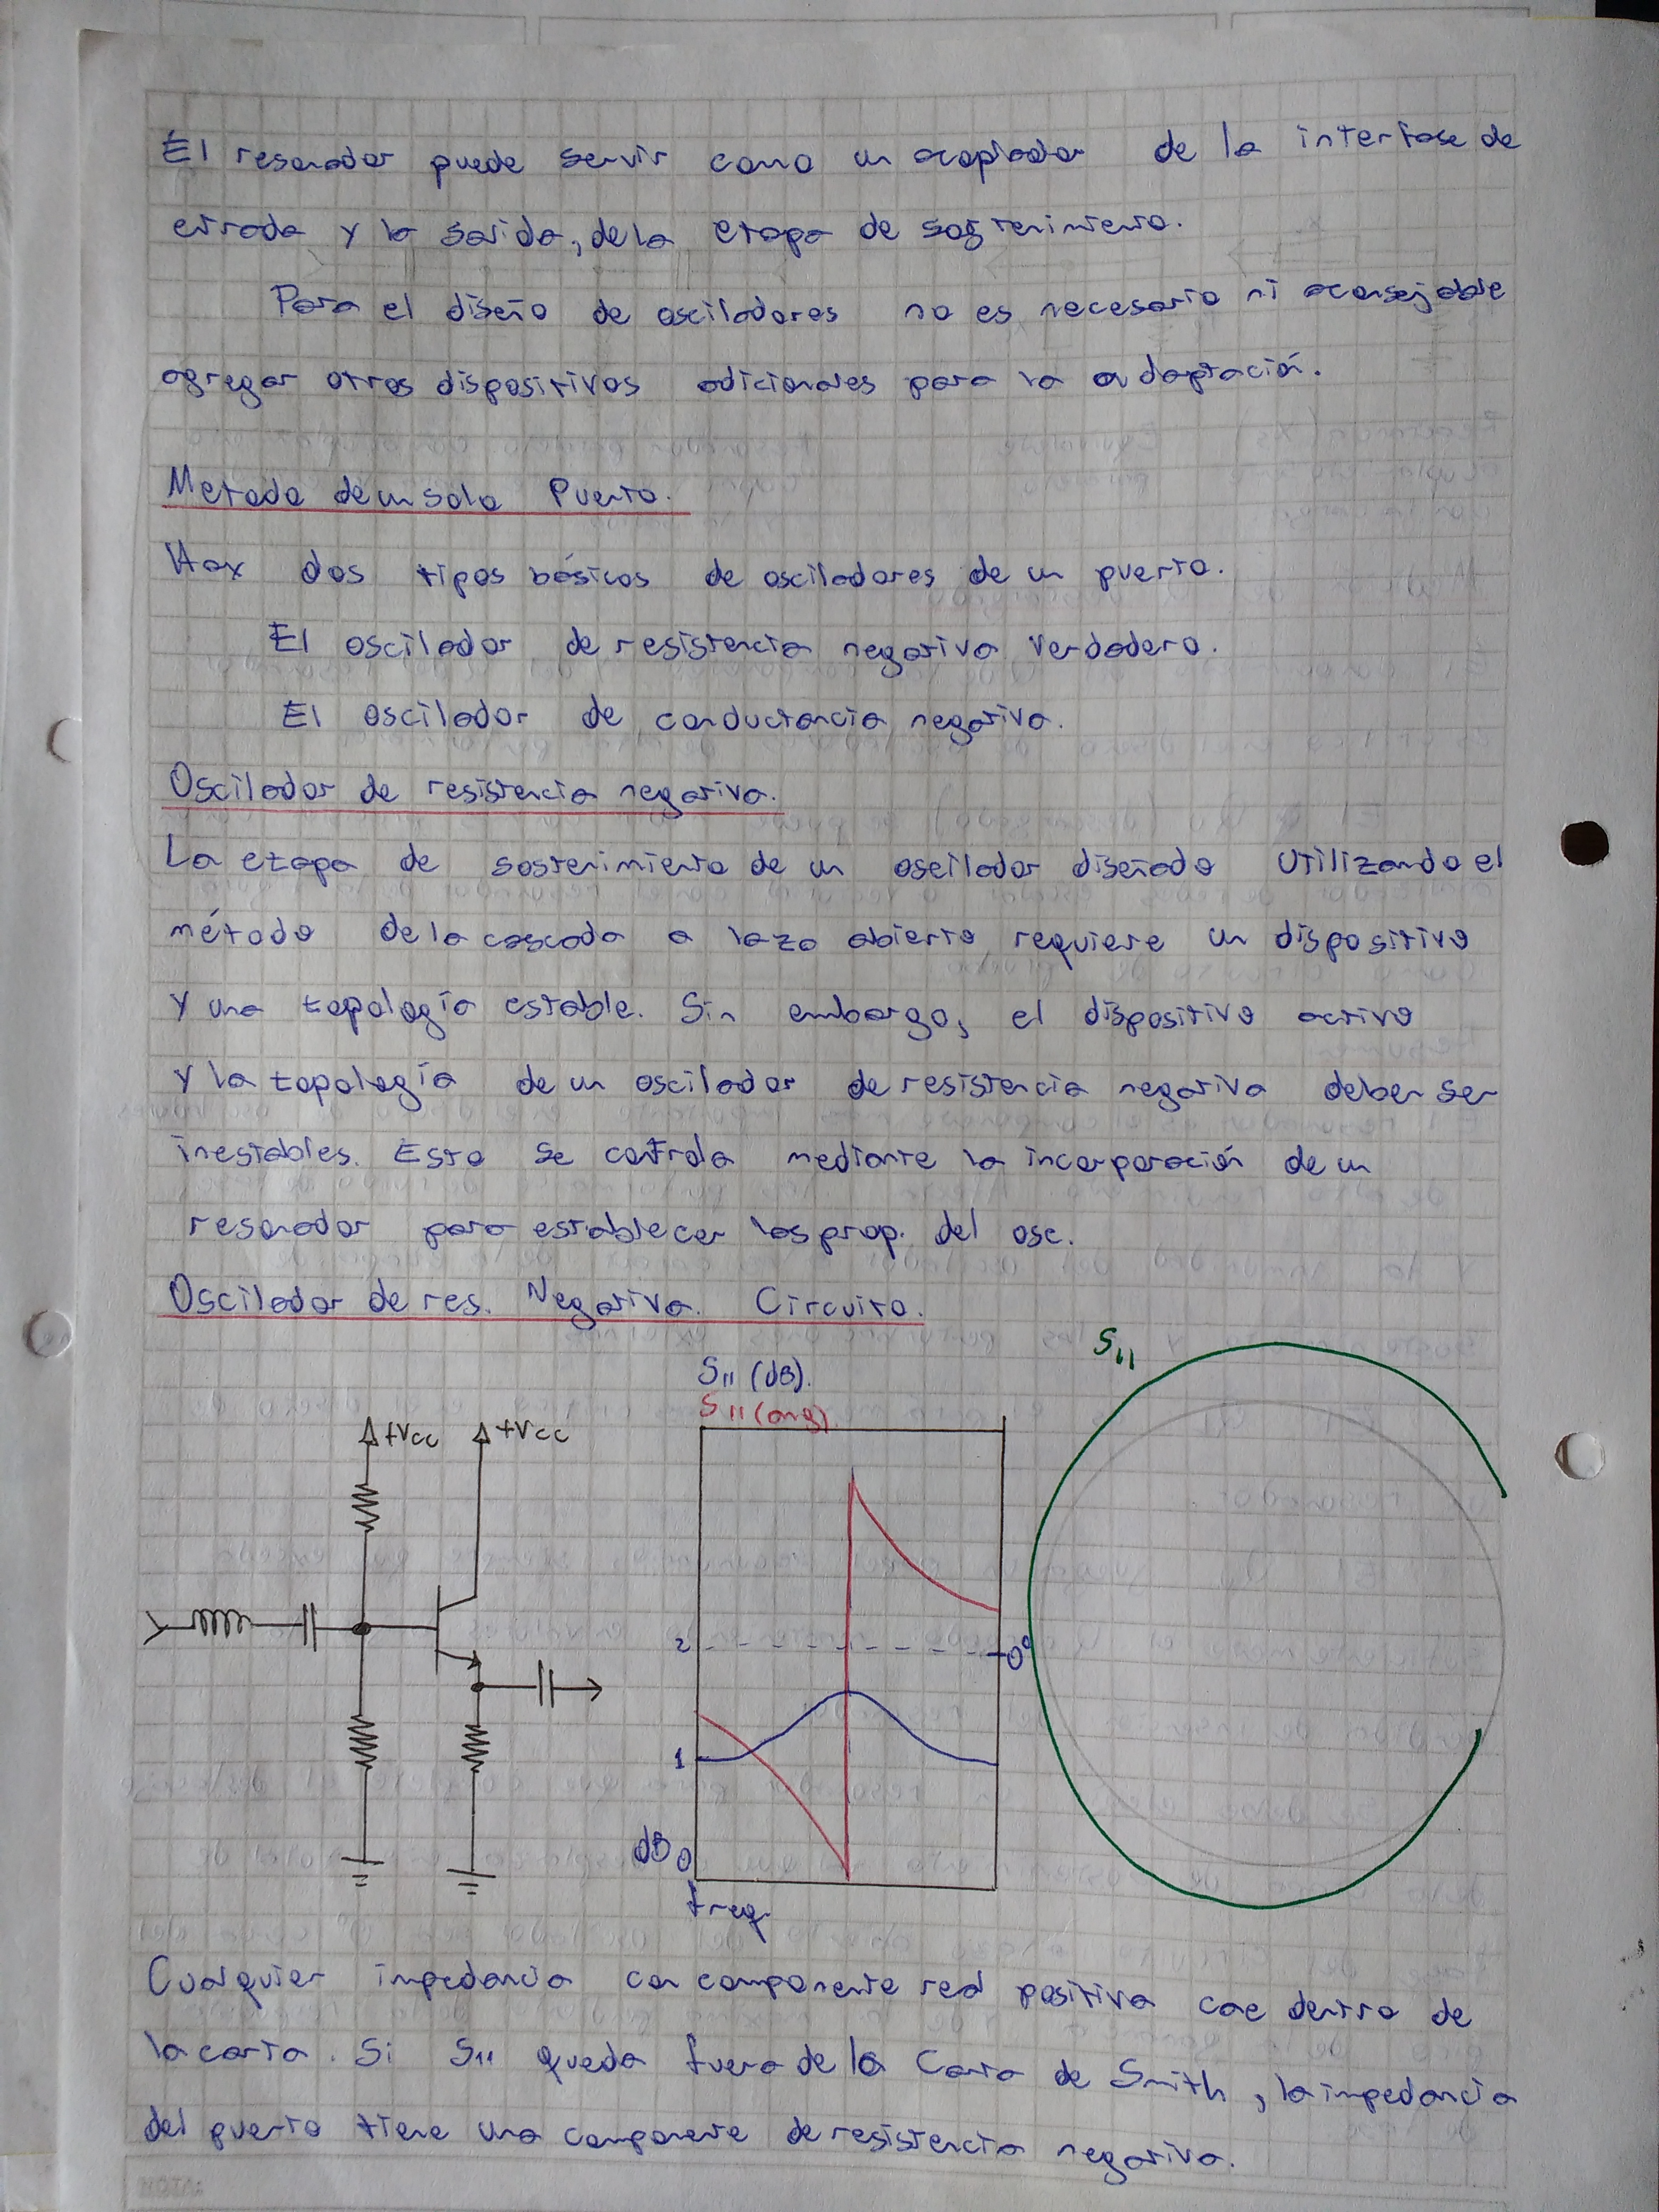 El resonador puede servir como un acoplador de la interfase de
entrada y la salida, de la etapa de sostenimiento.
Para el diseño de osciladores no es necesario ni aconsejable
agregar otros dispositivos adicionales para la adaptación.
Metodo de un solo Puerto.
Hay dos tipos básicos de osciladores de un puerto.
El oscilador de resistencia negativa verdadero.
El oscilador de conductancia negativa.
Oscilador de resistencia negativa.
La etapa de sostenimiento de un oscilador diseñado utilizando el
método de la cascada a lazo abierto requiere un dispositivo
y una topología estable. Sin embargo, el dispositivo activo
y la topología de un oscilador de resistencia negativa deben ser
inestables. Esto se controla mediante la incorporación de un
resonador para establecer las prop. del osc.
Oscilador de res. Negativa. Circuito.
S11 (dB).
S11 (ang)
S11
+Vcc +Vcc
2
0°
1
dB 0
freq.
Cualquier impedancia con componente real positiva cae dentro de
la carta. Si S11 queda fuera de la Carta de Smith, la impedancia
del puerto tiene una componente de resistencia negativa.